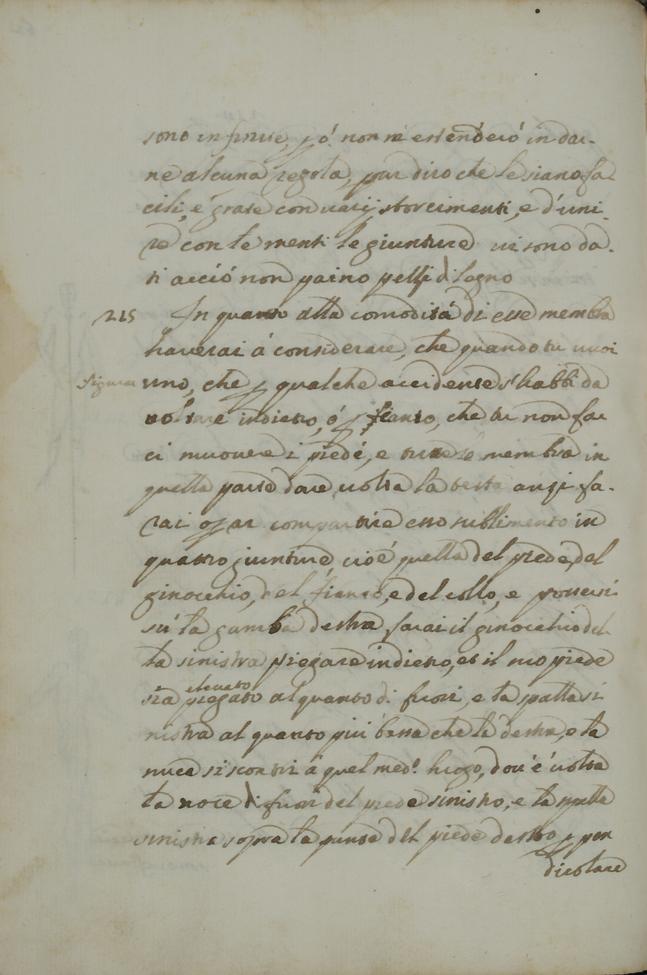 sono infinite, ꝑò non m'estenderò in dar-
ne alcuna regola, pur dirò che le siano fa
cili, e grate con varij storcimenti, e d'uni-
re con le menti le giunture vi sono da-
ti acciò non paino pezzi di legno
215 In quanto alla comodità di esse membra
haverai à considerare, che quando tu vuoi
figurar uno, che ꝑ qualche accidente s'habbi da
voltare indietro, ó ꝑ fianco, che tu non fac
ci muovere i piedi, e tutte le membra in
quella parte dove volta la testa anzi fa-
rai oprar compartire esso in
quattro giunture cioè quella del piede, del
ginocchio, del fianco, e del collo, e
su la gamba destra farai il ginocchio del
la sinistra piegare indietro, et il suo piede
elevato
sia piegato alquanto di fuori, e la spalla si
nistra al quanto più bassa che la destra, e la
nuca si scontri à quel med.º luogo, dov'è volta
la noce di fuori del piede sinistro, e la spalla
sinistra sopra la punta del piede destro ꝑ pen
dicolare